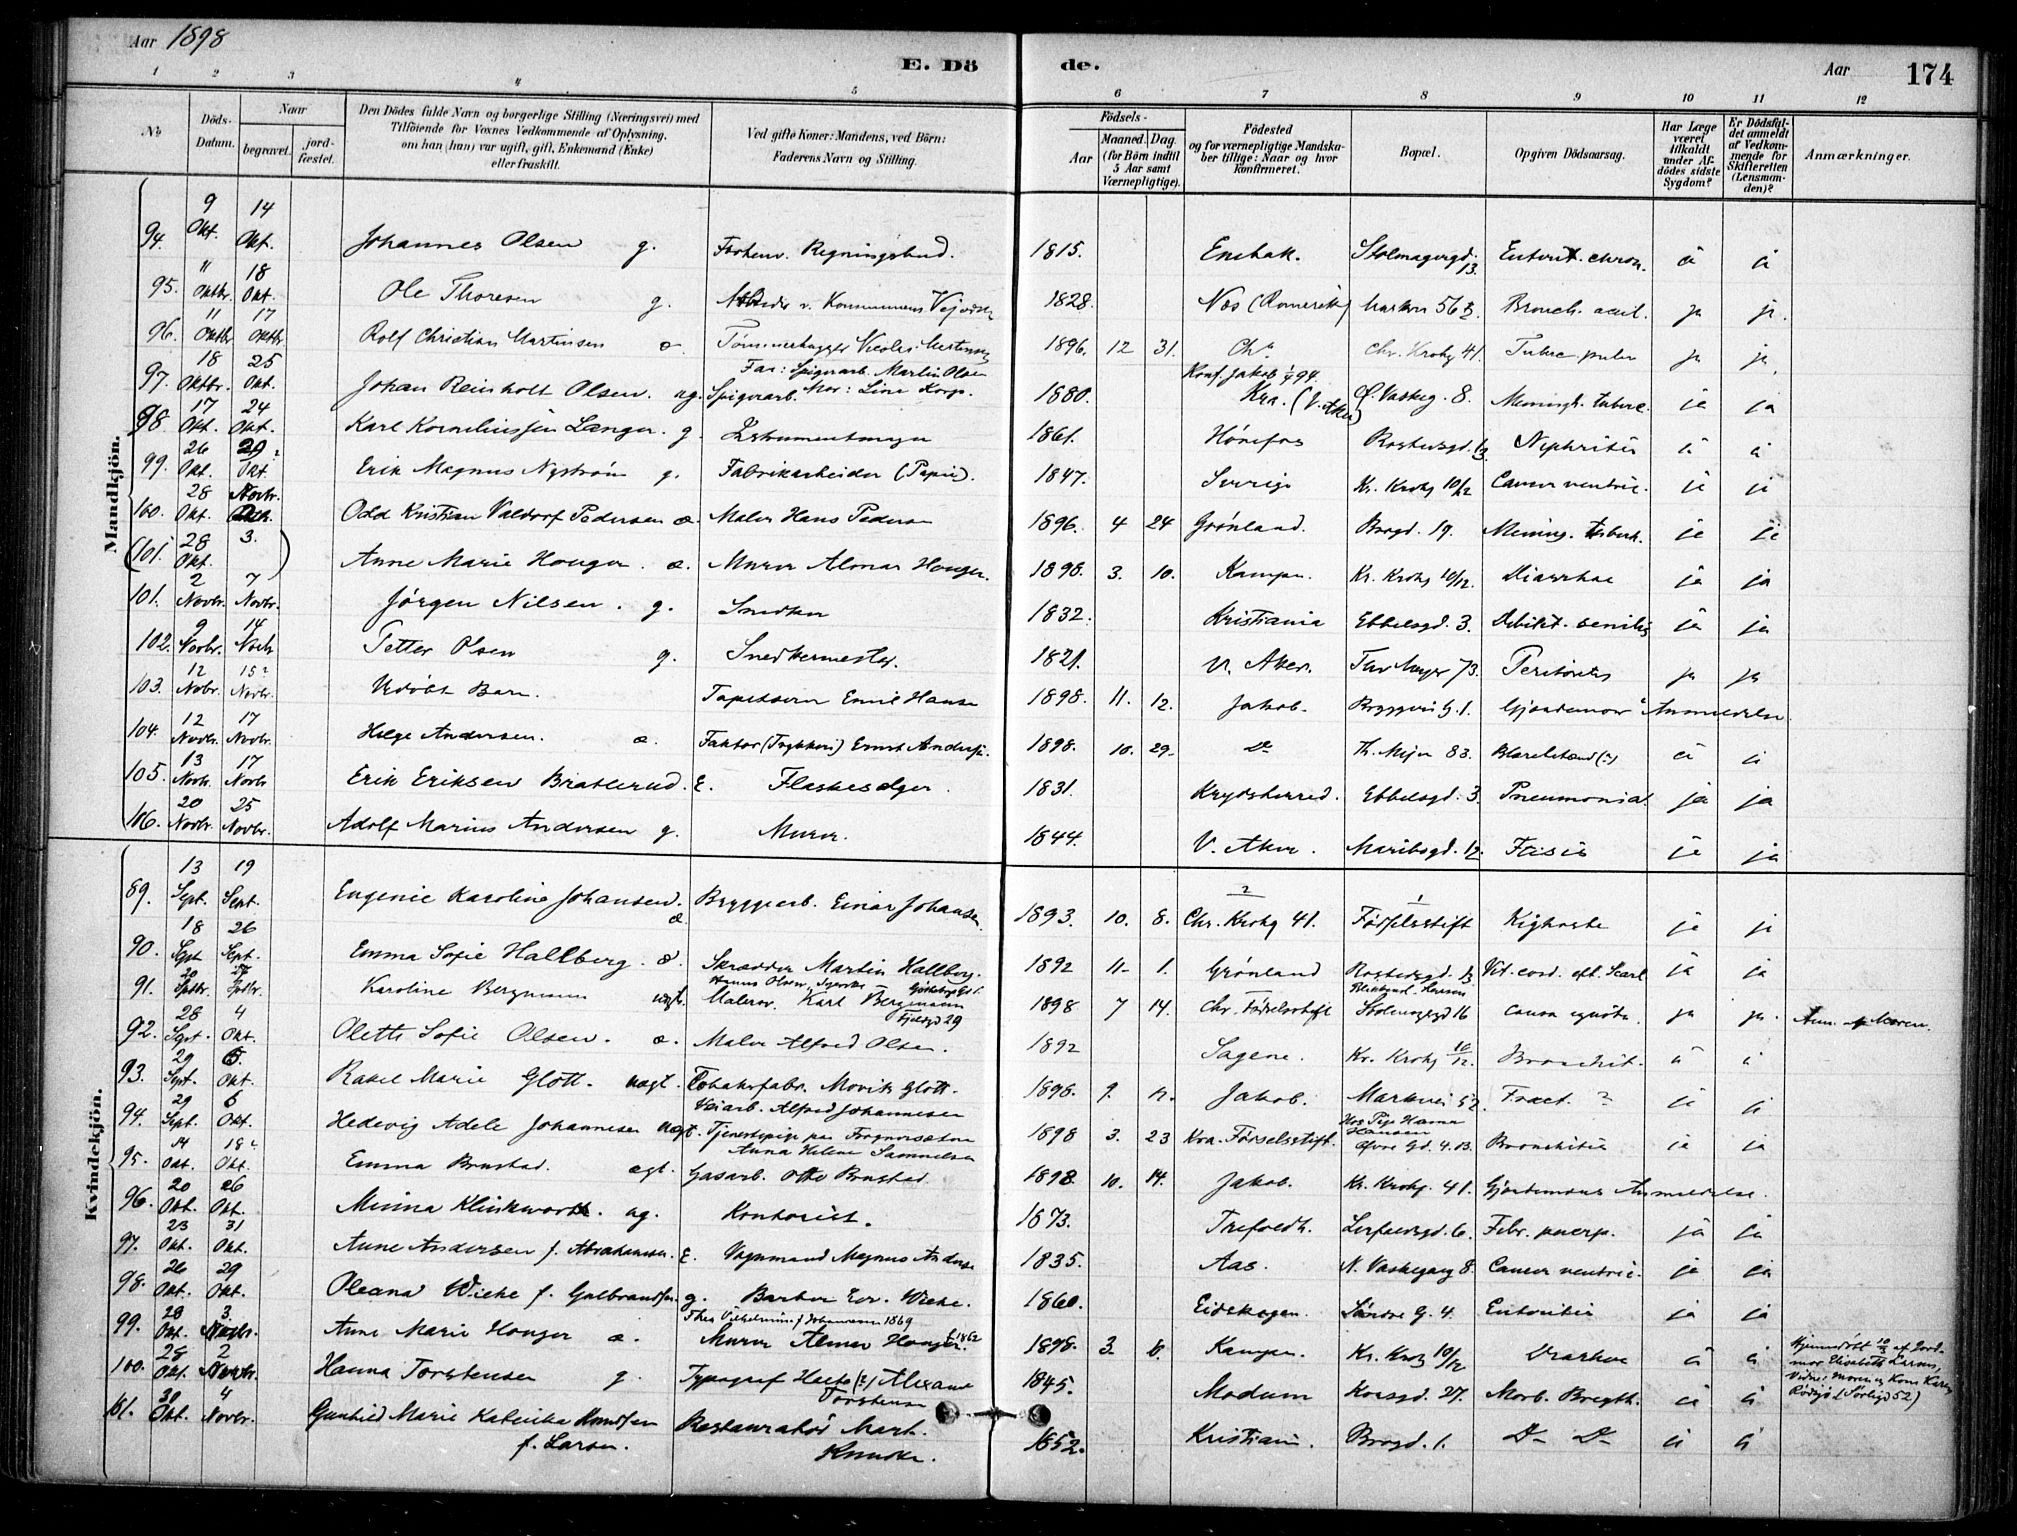 Aar 1898
E. Dö
de.
Aar
174
1 2 3 4 5 6 7 8 9 10 11 12
№
Döds-Datum.
Naar
begravet.
jord-fæstet.
Den Dödes fulde Navn og borgerlige Stilling (Næringsvei) med
Tilföiende for Voxnes Vedkommende af Oplysning.
om han (hun) var ugift, gift, Enkemand (Enke)
eller fraskilt.
Ved gifte Koner: Mandens, ved Börn:
Faderens Navn og Stilling.
Födsels-
Aar
Maaned. Dag.
(for Börn indtil
5 Aar samt
Værnepligtige).
Födested
og for værnepligtige Mandska-
ber tillige: Naar og hvor
Konfirmeret.
Bopæl.
Opgiven Dödsaarsag.
Har Læge
været
tilkaldt
under Af-
dödes sidste
Sygdom?
Er Dödsfal-
det anmeldt
af Vedkom-
mende for
Skifteretten
(Lensman-
den)?
Anmærkninger.
Mandkjön.
94. 9 Okt. 14 Okt. Johannes Olsen g. Forhenv. Regningsbud. 1815. Enebak. 13. Enterit. chron. ja ja
95. 11 Oktbr. 18 Okt. Ole Thoresen g. 1828. Nes (Romerike) Markvn 56 Bronch. ja ja
96. 11 Oktbr 17 Oktbr Rolf Christian Martinsen æ. Tømmerhugger 1896. 12 31. Chr. Krohg 41. ja ja
97. 18 Oktbr. 25 Okt. Johan Reinholt Olsen. ug. Spigerarb. Far: Spigerarb. Martin Olsen Mor: Line 1880. Konf. Jakob 94. Kra. (V. Aker) 8. Meningit. tuberc. ja ja
98. 17 Okt. 24 Okt. Karl Korneliussen Langer. g. Instrumentmager 1861. Hønefos 13 Nephritis ja ja
99. 26 Okt. 29 Okt. Erik Magnus Nystrøm g. Fabrikarbeider (Papir). 1847. Sverige Kr. Krohg 10/12 Cancer ventric. ja ja
100. 28 Okt. Novbr. Odd Kristian Valdorf Pedersen æ. Maler Hans Pedersen 1896. 4 24 Grønland. Brogd. 19. Mening. tuberk. ja ja
(101. 28 Okt. 3.) Anne Marie Houger. æ. Murer Almar Houger. 1898. 3. 10. Kampen. Kr. Krohg 10/12. Diarrhoe ja ja
101. 2 Novbr. 7 Novbr. Jørgen Nilsen. g. Snedker 1832. Kristiania Ebbelsgd. 3. Debilit. senilis ja ja
102. 9 Novbr. 14 Novb. Petter Olsen g. Snedkermester. 1821. V. Aker. 73. Peritonitis ja ja
103. 12 Novbr. 15 Novbr. Udøbt Barn. Tapetserer Emil Hansen 1898. 11. 12. Jakob. Bryggeri G. 1. Gjordemors Anmeldelse
104. 12 Novbr. 17 Novbr. Helge Andersen. æ. Faktor (Trykkeri) Ernst Andersen. 1898. 10. 29. Do Th. Mejer 83. ja ja
105. 13 Novbr. 17 Novbr Erik Eriksen Bratlerud. E. Flaskesælger. 1831. Krydsherred. Ebbelsgd. 3 Pneumonia. ja ja
106. 20 Novbr. 25 Novbr. Adolf Marius Andersen g. Murer. 1844. V. Aker. Maribogd. 12. Ftisis ja ja
Kvindekjön.
89. 13 Sept. 19 Sept. Eugenie Karoline Johansen. æ Bryggerarb. Einar Johansen 1893. 10. 8. Chr. Krohg 41. Fødselsstift Kighoste ja ja
90. 18 Sept 26 Sept. Emma Sofie Hallberg. æ. Skrædder Martin Hallberg. 1892 11. 1. Grønland 13 Vit. cord. eft. Scarl. ja ja
91. 20 Sptbr. Sptbr. Karoline Bergmann uægt. Malersv. Karl Bergmann 1898 7 14. Chr. Fødselsstift 16 Causa ignota. ja ja. Anm. af Moren.
92. 28 Sept. 4 Okt. Olette Sofie Olsen. æ. Maler Alfred Olsen. 1892 Sagene. Kr. Krohg 10/12. Bronchit. ja ja
93. 29 Sept. 5. Okt. Rakel Marie Glott. uægt. Tobaksfabr. Glott. 1898. 9. Jakob. Markvei 52. ? ja ja
94. 29 Sept. 5 Okt. Hedevig Adele Johannesen uægt. Veiarb. Alfred Johannesen Tjenestepige Anna Helene Samuelsen 1898 3. 23 Kra. Fødselsstift. Hansen Øvre Gd. 4. Bronchitis ja ja
95. 14 Okt. 18 Okt. Emma Brustad. ægt. Gasarb. Otto Brustad. 1898. 10. 14. Jakob. Kr. Krohg. 41. Gjordemors Anmeldelse.
96. 20 Okt. 26 Okt. Minna Klinkworth. ug. Kontorist. 1873. 6. Febr. puerp. ja ja
97. 23 Okt. 31 Okt. Anne Andersen f. Abrahamsen. E. Vognmand Magnus Andersen 1835. Aas. N. Vaskegang 8. Cancer ventric. ja ja
98. 26 Okt. 29 Okt. Oleana Wiche f. Gulbrandsen g. Barber Wiche. 1860. Eidskogen. Søndre G. 4. Enteritis ja ja
99. 28 Okt. 3. Novbr. Anne Marie Houger æ. Murer Almar Houger. f. 1862 Thea Vilhelmine f. Johannesen 1869 1898. 3. Kampen. Kr. Krohg 10/12 Diarhoe ja ja Hjemmedøbt af Jord-mor Elisabeth Larsen, Vidne: Moren
100. 28 Okt. 2 Novbr. Hanna Torstensen g. Typograf Torstensen 1845. Modum Korsgd. 27. Morb. Brigth. ja ja
101. 30 Okt. 4 Novbr. Gunhild Marie Katerika Knudsen f. Larsen. Restauratør Mart. Knudsen. 1852. Kristiania. Brogd. 1. Do Do ja ja